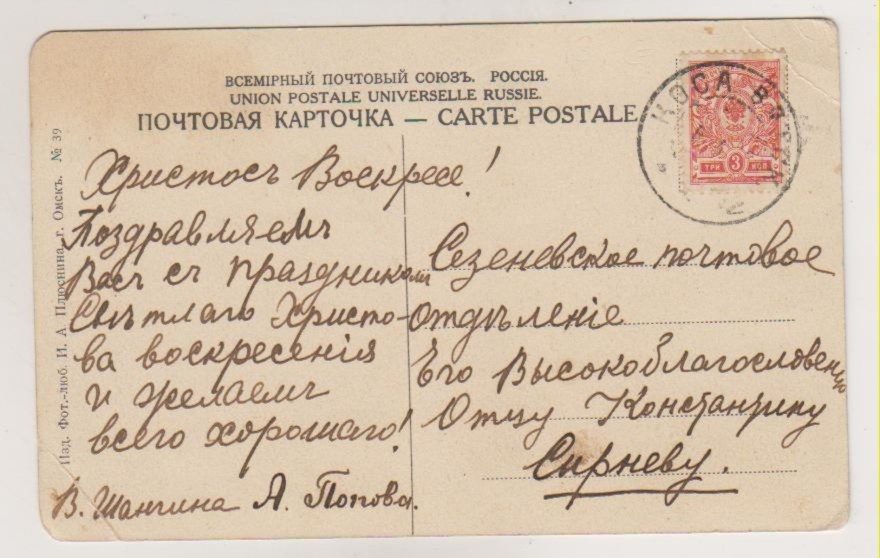 ВСЕМІРНЫЙ ПОЧТОВЫЙ СОЮЗЪ. РОССІЯ.
UNION POSTALE UNIVERSELLE RUSSIE.
ПОЧТОВАЯ КАРТОЧКА — CARTE POSTALE
Христосъ Воскресе!
Поздравляемъ
Васъ съ праздникомъ
Свѣтлаго Христо-
ва воскресенія
и желаемъ
всего хорошаго!
В. Шангина А. Попова.
Сезеневское почтовое
отдѣленіе
Его Высокоблагословенію
Отцу Константину
Сирневу.
КОСА ВЯТСК
3
ТРИ КОП
Изд. Фот.-люб. И. А. Плюснина, г. Омскъ. № 39